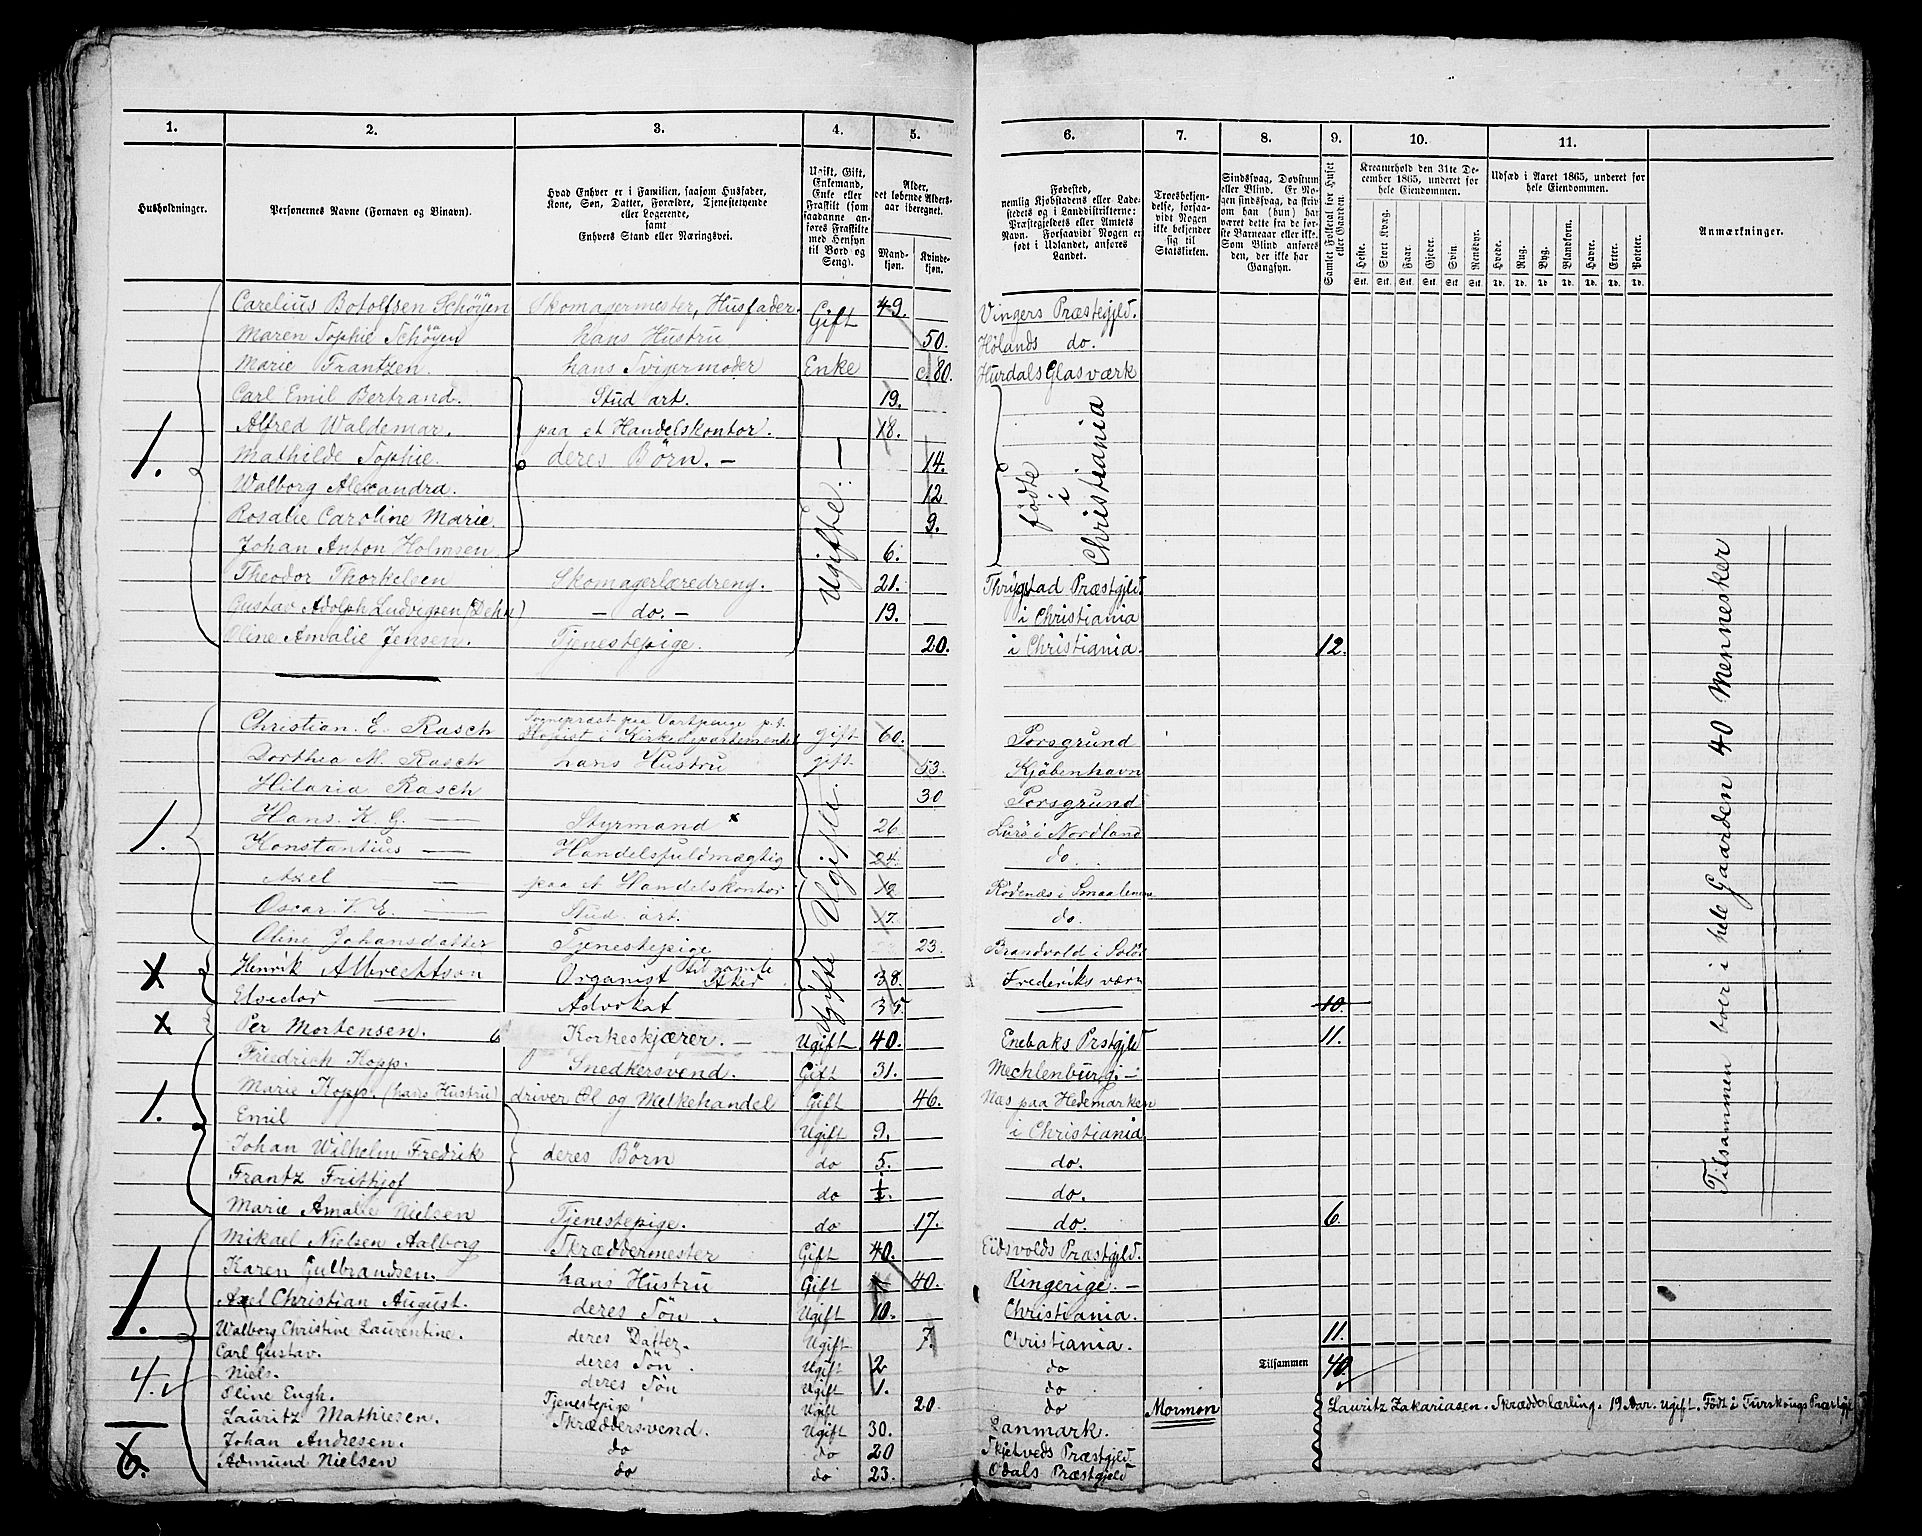 1. 2. 3. 4. 5. 6. 7. 8. 9. 10. 11.
Husholdninger.
Personernes Navne (Fornavn og Binavn).
Hvad Enhver er i Familien, saasom Husfader,
Kone, Søn, Datter, Forældre, Tjenestetyende
eller Logerende,
samt
Enhvers Stand eller Næringsvei.
Ugift, Gift,
Enkemand,
Enke eller
Fraskilt (som
saadanne anføres
Fraskilte
med Hensyn
til Bord og
Seng).
Alder,
det løbende Alders-
aar iberegnet.
Mand-
kjøn.
Kvinde-
kjøn.
Fødested,
nemlig Kjøbstadens eller Lade-
stedets og i Landdistrikterne:
Præstegjeldets eller Amtets
Navn. Forsaavidt Nogen er
født i Udlandet, anføres
Landet.
Troesbekjen-
delse, forsaa-
vidt Nogen
ikke bekjender
sig til
Statskirken.
Sindssvag, Døvstum
eller Blind. Er No-
gen sindssvag, da skrives
om han (hun) har
været dette fra de før-
ste Barneaar eller ikke.
Som Blind anføres
den, der ikke har
Gangsyn.
Samlet Folketal for Huset
eller Gaarden.
Kreaturhold den 31te De-
cember 1865, underet for
hele Eiendommen.
Heste. Stort Kvæg. Faar. Gjeder. Svin. Rensdyr.
Stk. Stk. Stk. Stk. Stk. Stk.
Udsæd i Aaret 1865, underet for
hele Eiendommen.
Hvede. Rug. Byg. Blandkorn. Havre. Erter. Poteter.
Td. Td. Td. Td. Td. Td. Td.
Anmærkninger.
Carelius Botolfsen Schøyen Skomagermester, Husfader. Gift 49. Vingers Præstegjld.
Maren Sophie Schøyen hans Hustru 50. Hølands do.
Marie Frantzen. hans Svigermoder Enke c. 80. Hurdals Glasværk
Carl Emil Bertrand. Stud art. 19.
Alfred Waldemar. paa et Handelskontor. 18.
1. Mathilde Sophie. deres Børn. — Ugifte. — 14. fødte i Christiania
Walborg Alexandra. 12
Rosalie Caroline Marie 9.
Johan Anton Holmsen 6.
Theodor Thorkelsen Skomagerlæredreng. 21. Thrygstad Præstgjld
Gustav Adolph Ludvigsen (Dehn) — do. — 19. i Christiania
Oline Amalie Jensen. Tjenestepige. 20. i Christiania. 12.
Christian. E. Rasch Sognepræst paa Vartpenge p.t.
Kopist i Kirkedepartementet gift 60. Porsgrund
Dorthea M. Rasch hans Hustru gift. 53. Kjøbenhavn
Hilaria Rasch 30 Porsgrund
Hans. K. G. — Styrmand x 26 Lurø i Nordland
1. Konstantius — Handelsfuldmægtig Ugifte. 24. do.
Axel — paa et Handelskontor Rødenæs i Smaalenene
Oscar. V. E. — Stud. art. 17. do.
Oline Johansdatter Tjenestepige 23. Brandvold i Solør
x Henrik Albrechtson Organist Ugifte 38. Frederiksværn
Elvedor — Advokat 35 — 10.
x Per Mortensen. Korkeskjærer. — Ugift. 40. Enebaks Prstgjld 11.
Friedrich Kopp. Snedkersvend. Gift 31. Mechlenburg. —
1. Marie Kopp. (hans Hustru) driver Øl og Melkehandel Gift 46. Næs paa Hedemarken
Emil Ugift 9. i Christiania
Johan Wilhelm Fredrik deres Børn do 5. do.
Frantz Frithjof do ½. do.
Marie Amalie Nielsen Tjenestepige. do 17. do. 6.
Mikael Nielsen Aalborg Skræddermester Gift 40. Eidsvolds Præstgjld.
Karen Gulbrandsen. hans Hustru Gift 40. Ringerige. —
1. Axel Christian August. deres Søn. Ugift 10. Christiania.
Walborg Christine Laurentine. deres Datter Ugift 7. Christiania. 11.
Carl Gustav. deres Søn. Ugift 2 do Tilsammen 40.
4. Niels. deres Søn Ugift 1. do
Oline Engh. Tjenestepige Ugift 20. do Mormon
Lauritz Mathiesen. Skræddersvend. Ugift 30. Danmark.
6. Johan Andresen. do do 20 Skjetveds Præstgjld.
Admund Nielsen do do 23. Odals Præstgjeld
Lauritz Zakariasen. Skrædderlærling. 19 Aar. Ugift. Født i
Tilsammen boer i hele Gaarden 40 Mennesker